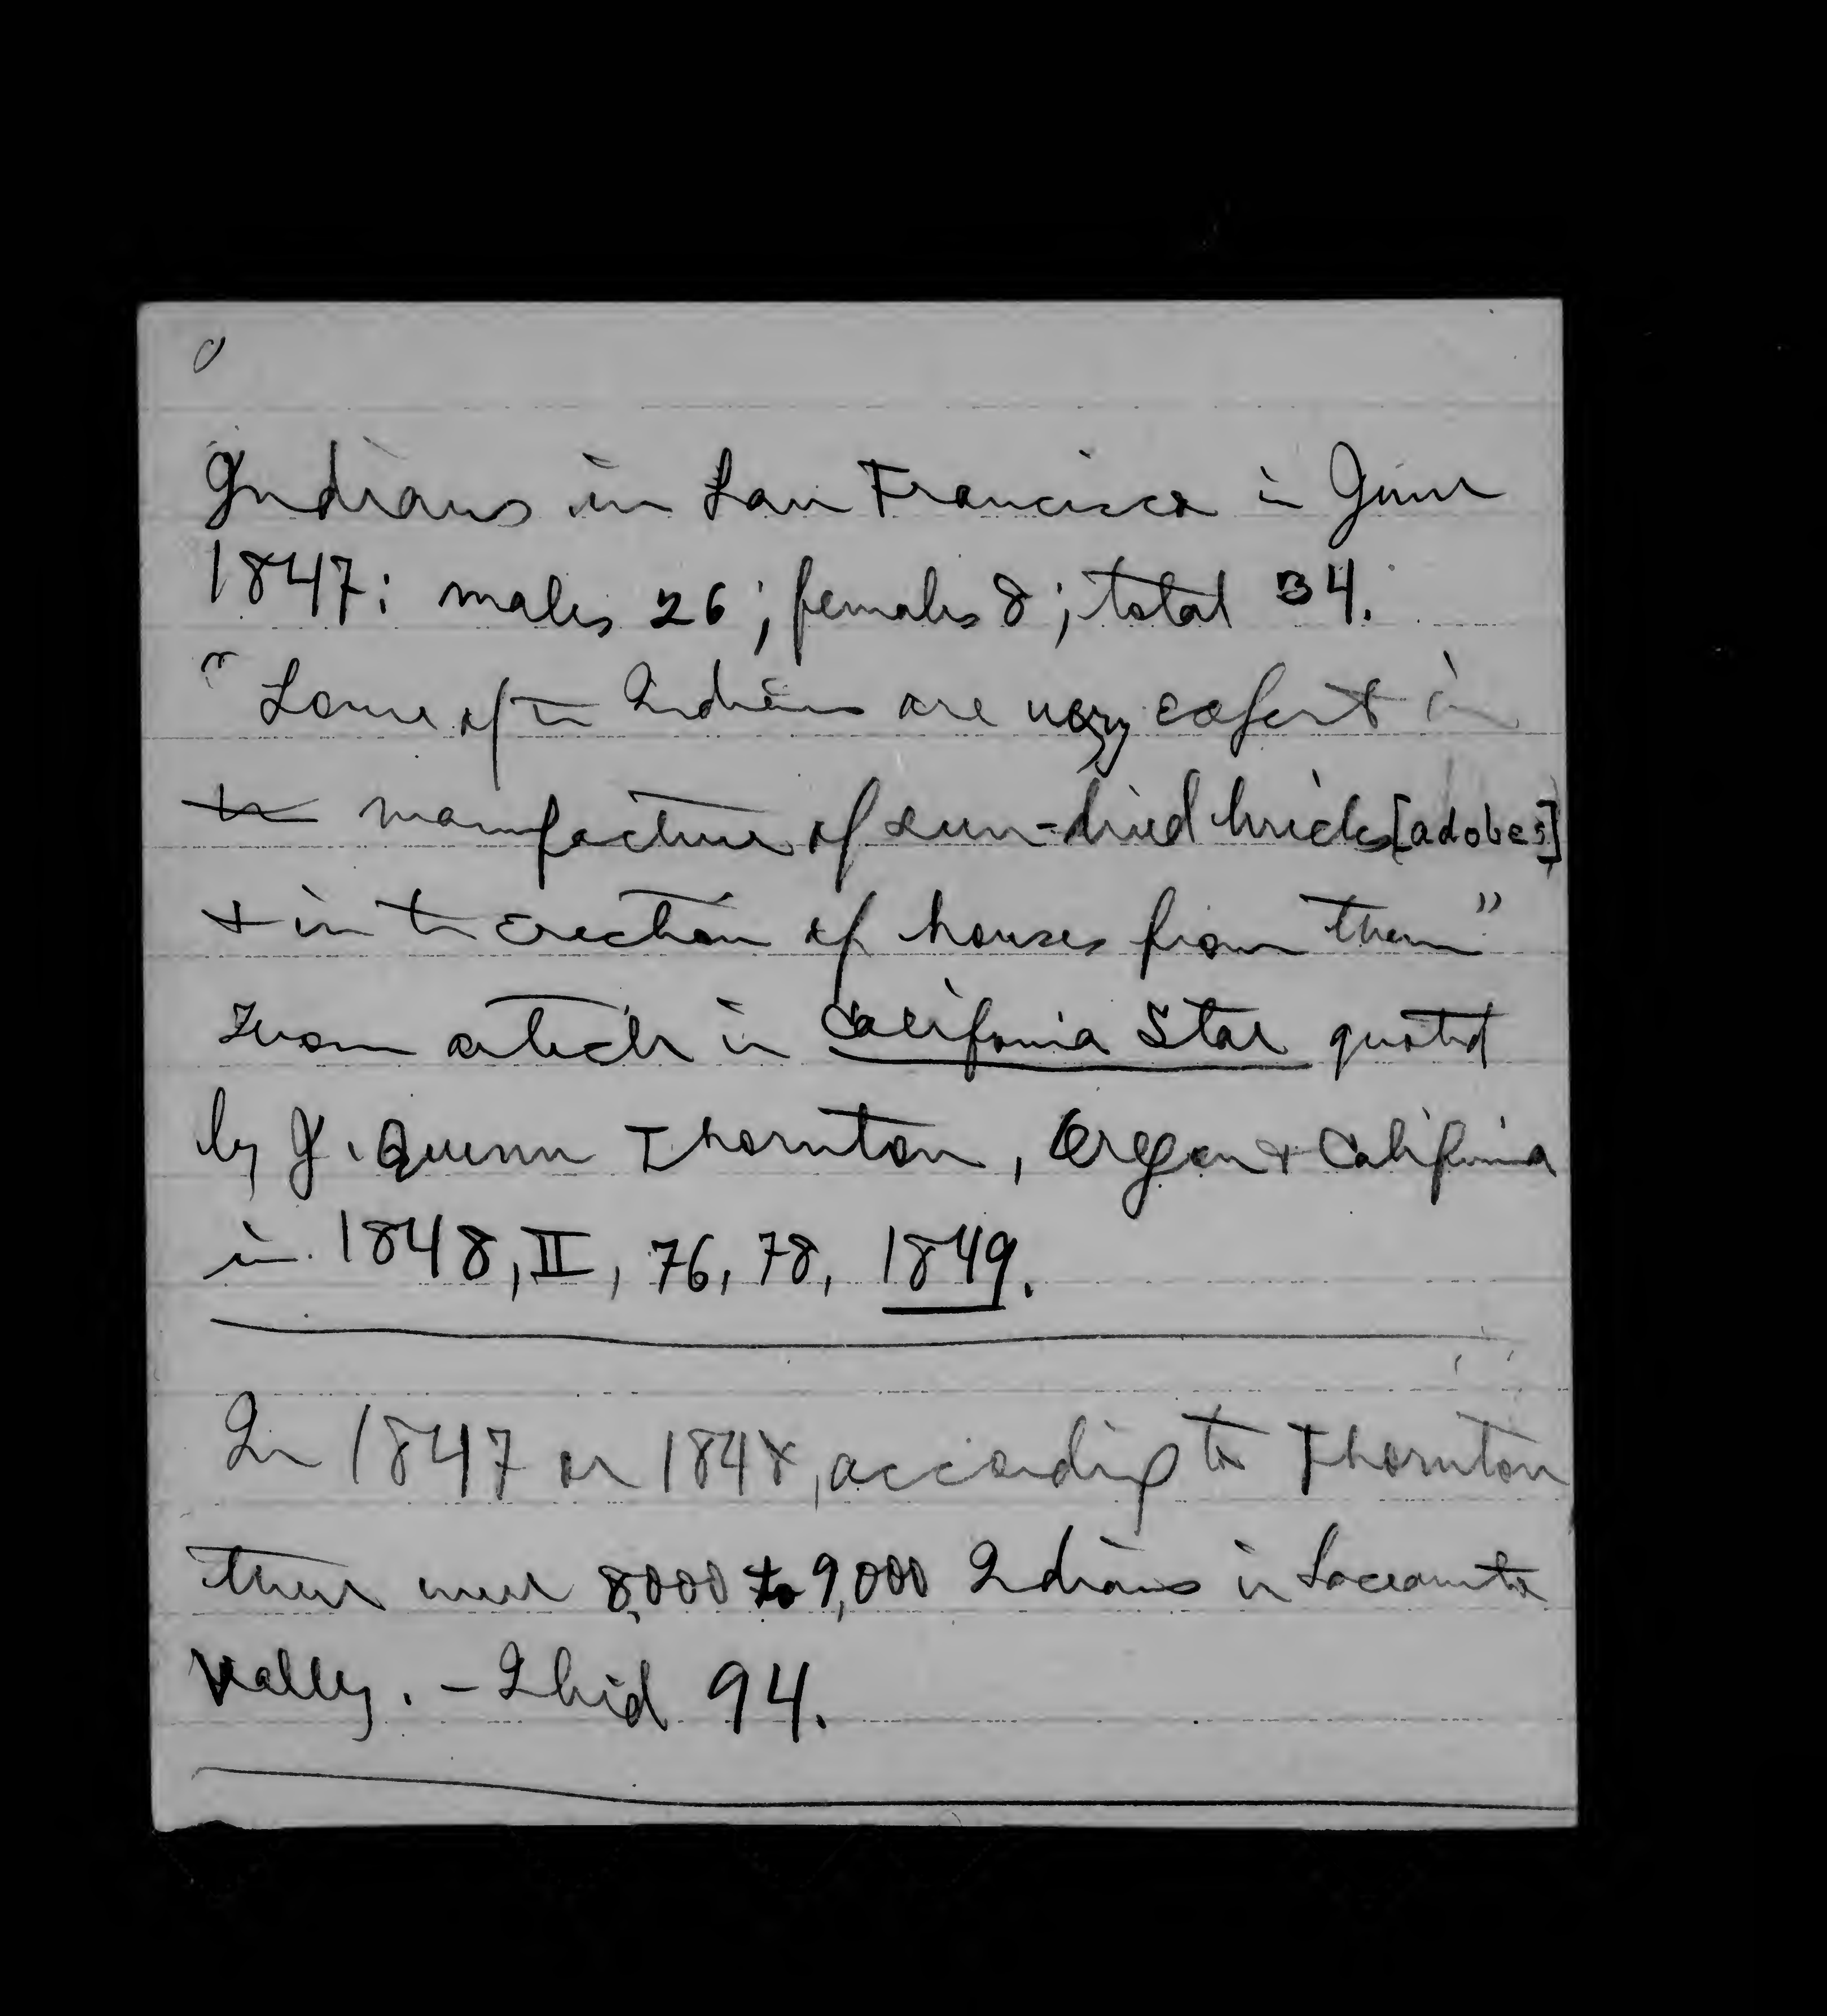 Indians in San Francisco in June
1847: males 26; females 8; total 34.
"Some of the Indians are very expert in
the manufacture of sun-dried bricks [adobes]
+ in the erection of houses from them"
From article in California Star quoted
by J. Quinn Thornton, Oregon + California
in 1848, II, 76, 78, 1849.
In 1847 or 1848, according to Thornton
there were 8,000 to 9,000 Indians in Sacramento
Valley. - Ibid 94.